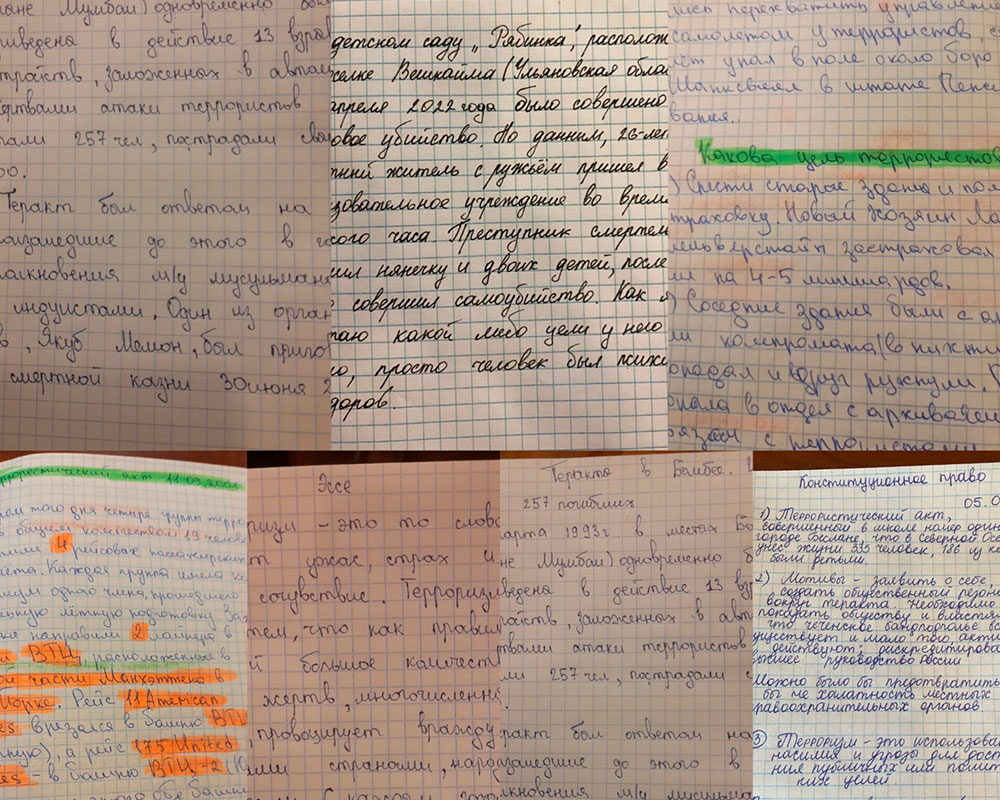 не Мумбаи) одновременно
приведена в действие 13 взрыв
устройств, заложенных в
жертвами атаки террористов
257 чел, пострадали
Теракт был ответом на
произошедшие до этого в
столкновения м/у мусульмана
индуистами. Один из орган
в, Якуб Мемон, был приго
смертной казни 30 июня 2
детском саду „Рябинка", располож
селке Вешкайма (Ульяновская облас
апреля 2022 года было совершено
овое убийство. По данным, 26-лет
тний житель с ружьём пришел в
зовательное учреждение во врем
хого часа. Преступник смертел
ил нянечку и двоих детей, после
совершил самоубийство. Как я
таю какой либо цели у него
о, просто человек был психи
доров.
перехватить управлени
самолетом у террористов,
упал в поле около горо
Шанксвилл в штате Пенси
вания.
Какова цель террористов
) Снести старое здание и пол
траховку. Новый хозяин Ла
ильверстайн застраховал
на 4-5 миллиардов.
) Соседние здания были с
компромата (в
и вдруг рухнули.
попала в отдел с архивами
с террористами
ррорестический акт 11.09.2001
ром того дня четыре группы терро
общем количеством 19 человек
4 рейсовых пассажирских
Каждая группа имела
одного члена, прошедшего
льную лётную подготовку. За
направили 2 лайнера в
ВТЦ, расположенные в
ой части Манхэттена в
Йорке. Рейс 11 American
es врезался в башню ВТЦ
рную), а рейс 175 United
es - в башню ВТЦ-2 (Ю
этого обе башни
Эссе
ризм - это то слово
т ужас, страх и
сочувствие. Терроризм
тем, что как правил
й большое количест
жертв, многочисленны
провоцирует вражду
ими странами, наро
С каждым годом
Теракты в Бомбее.
257 погибших
арта 1993г в местах Бо
не Мумбаи) одновременно б
ведена в действие 13 взр
ройств, заложенных в авто
твами атаки террористов
и 257 чел, пострадали с
ракт был ответом на
зошедшие до этого в
лкновения м/у мусульма
Конституционное право
05.0
1) Террористический акт,
совершенный в школе номер один
городе Беслане, что в Северной Осе
унес жизни 335 человек, 186 из ко
были детьми.
2) Мотивы - заявить о себе,
создать общественный резон
вокруг теракта. Необходимо
показать обществу и властям
что чеченское бандподполье вс
уществует и мало того, акти
действуют; дискредитирова
высшее руководство России
Можно было бы предотвратить
бы не халатность местных
равоохранительных органов.
3) Терроризм - это использова
насилия и угрозы для дост
ния публичных или полит
ких целей.